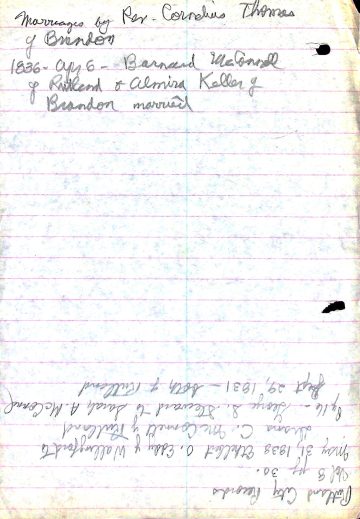 Marriages by Rev. Cornelius Thomas
of Brandon
1836 - Apr 6 - Barnard McConnell
of Rutland & Almira Keller of
Brandon married
Rutland City Records
Vol 3 pg 30.
May 31, 1938 Ethelbert O. Eddy of Wallingford to
C. McConnell of Rutland
George S. Steward to Sarah A. McConnell
Sept 29, 1831 - both of Rutland